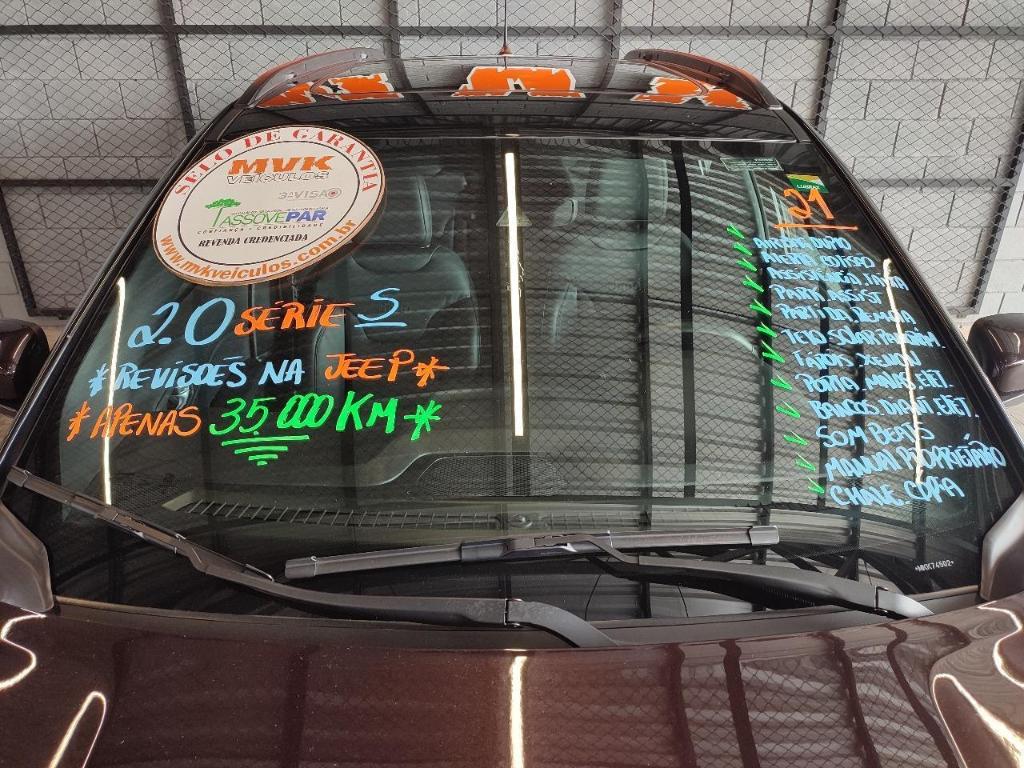 SELO DE GARANTIA
MVK
VEÍCULOS
3ªVISÃO
ASSOVEPAR
CONFIANÇA - CREDIBILIDADE
REVENDA CREDENCIADA
www.mvkveiculos.com.br
2.0 SÉRIE S
*REVISÕES NA JEEP*
*APENAS 35.000 KM*
21
PARK ASSIST
PARTIDA REMOTA
TETO SOLAR
FARÓIS XENON
PORTA MALAS ELÉT.
BANCOS ELÉT.
SOM BEATS
MANUAL PROPRIETÁRIO
CHAVE CÓPIA